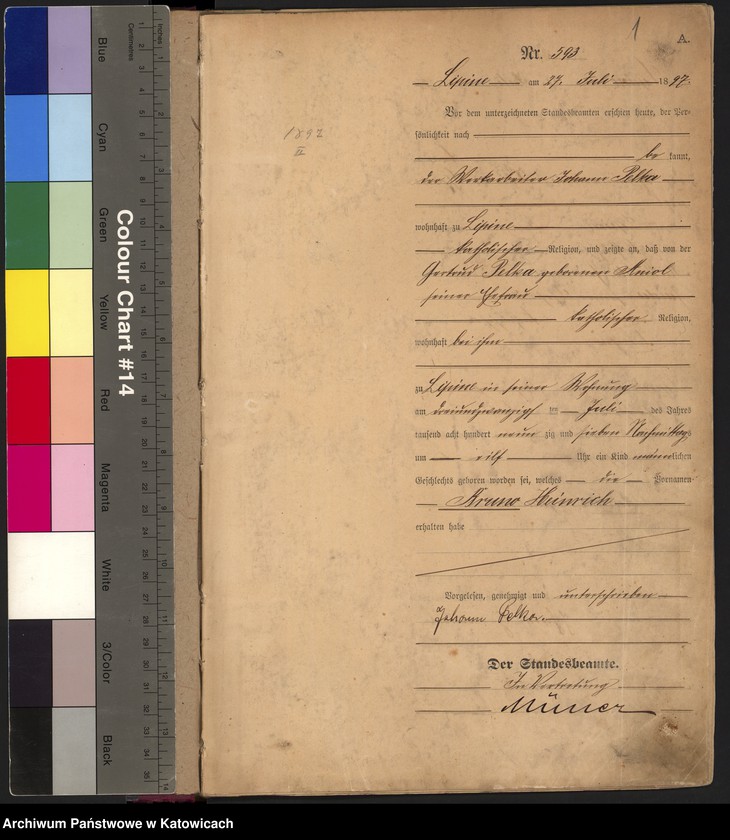 1
A.
Nr. 593
Lipine am 27. Juli 1897.
Vor dem unterzeichneten Standesbeamten erschien heute, der Per-
sönlichkeit nach
be kannt,
der Werkarbeiter Johann Pelka
wohnhaft zu Lipine
katholischer Religion, und zeigte an, daß von der
Gertrud Pelka geborenen Aniol
seiner Ehefrau
katholischer Religion,
wohnhaft bei ihm
zu Lipine in seiner Wohnung
am dreiundzwanzigsten Juli des Jahres
tausend acht hundert neun zig und sieben Nachmittags
um eilf Uhr ein Kind männlichen
Geschlechts geboren worden sei, welches die Vornamen
Bruno Heinrich
erhalten habe
Vorgelesen, genehmigt und unterschrieben
Johann Pelka.
Der Standesbeamte.
In Vertretung
1892
II
Colour Chart #14
Blue
Cyan
Green
Yellow
Red
Magenta
White
3/Color
Black
Centimetres
Inches
Archiwum Państwowe w Katowicach